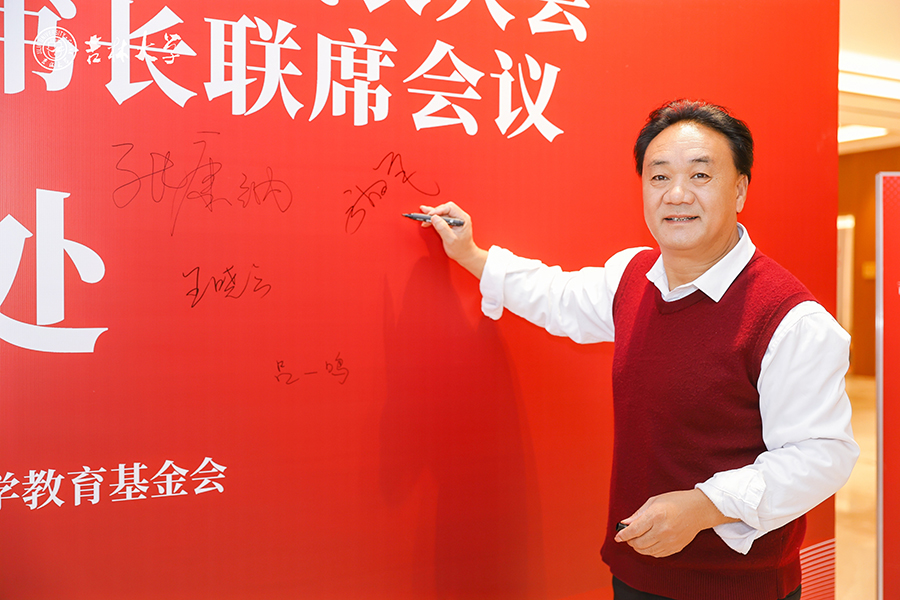 大会
吉林大学
书长联席会议
张康纳
王晓云
处
吕一鸣
学教育基金会